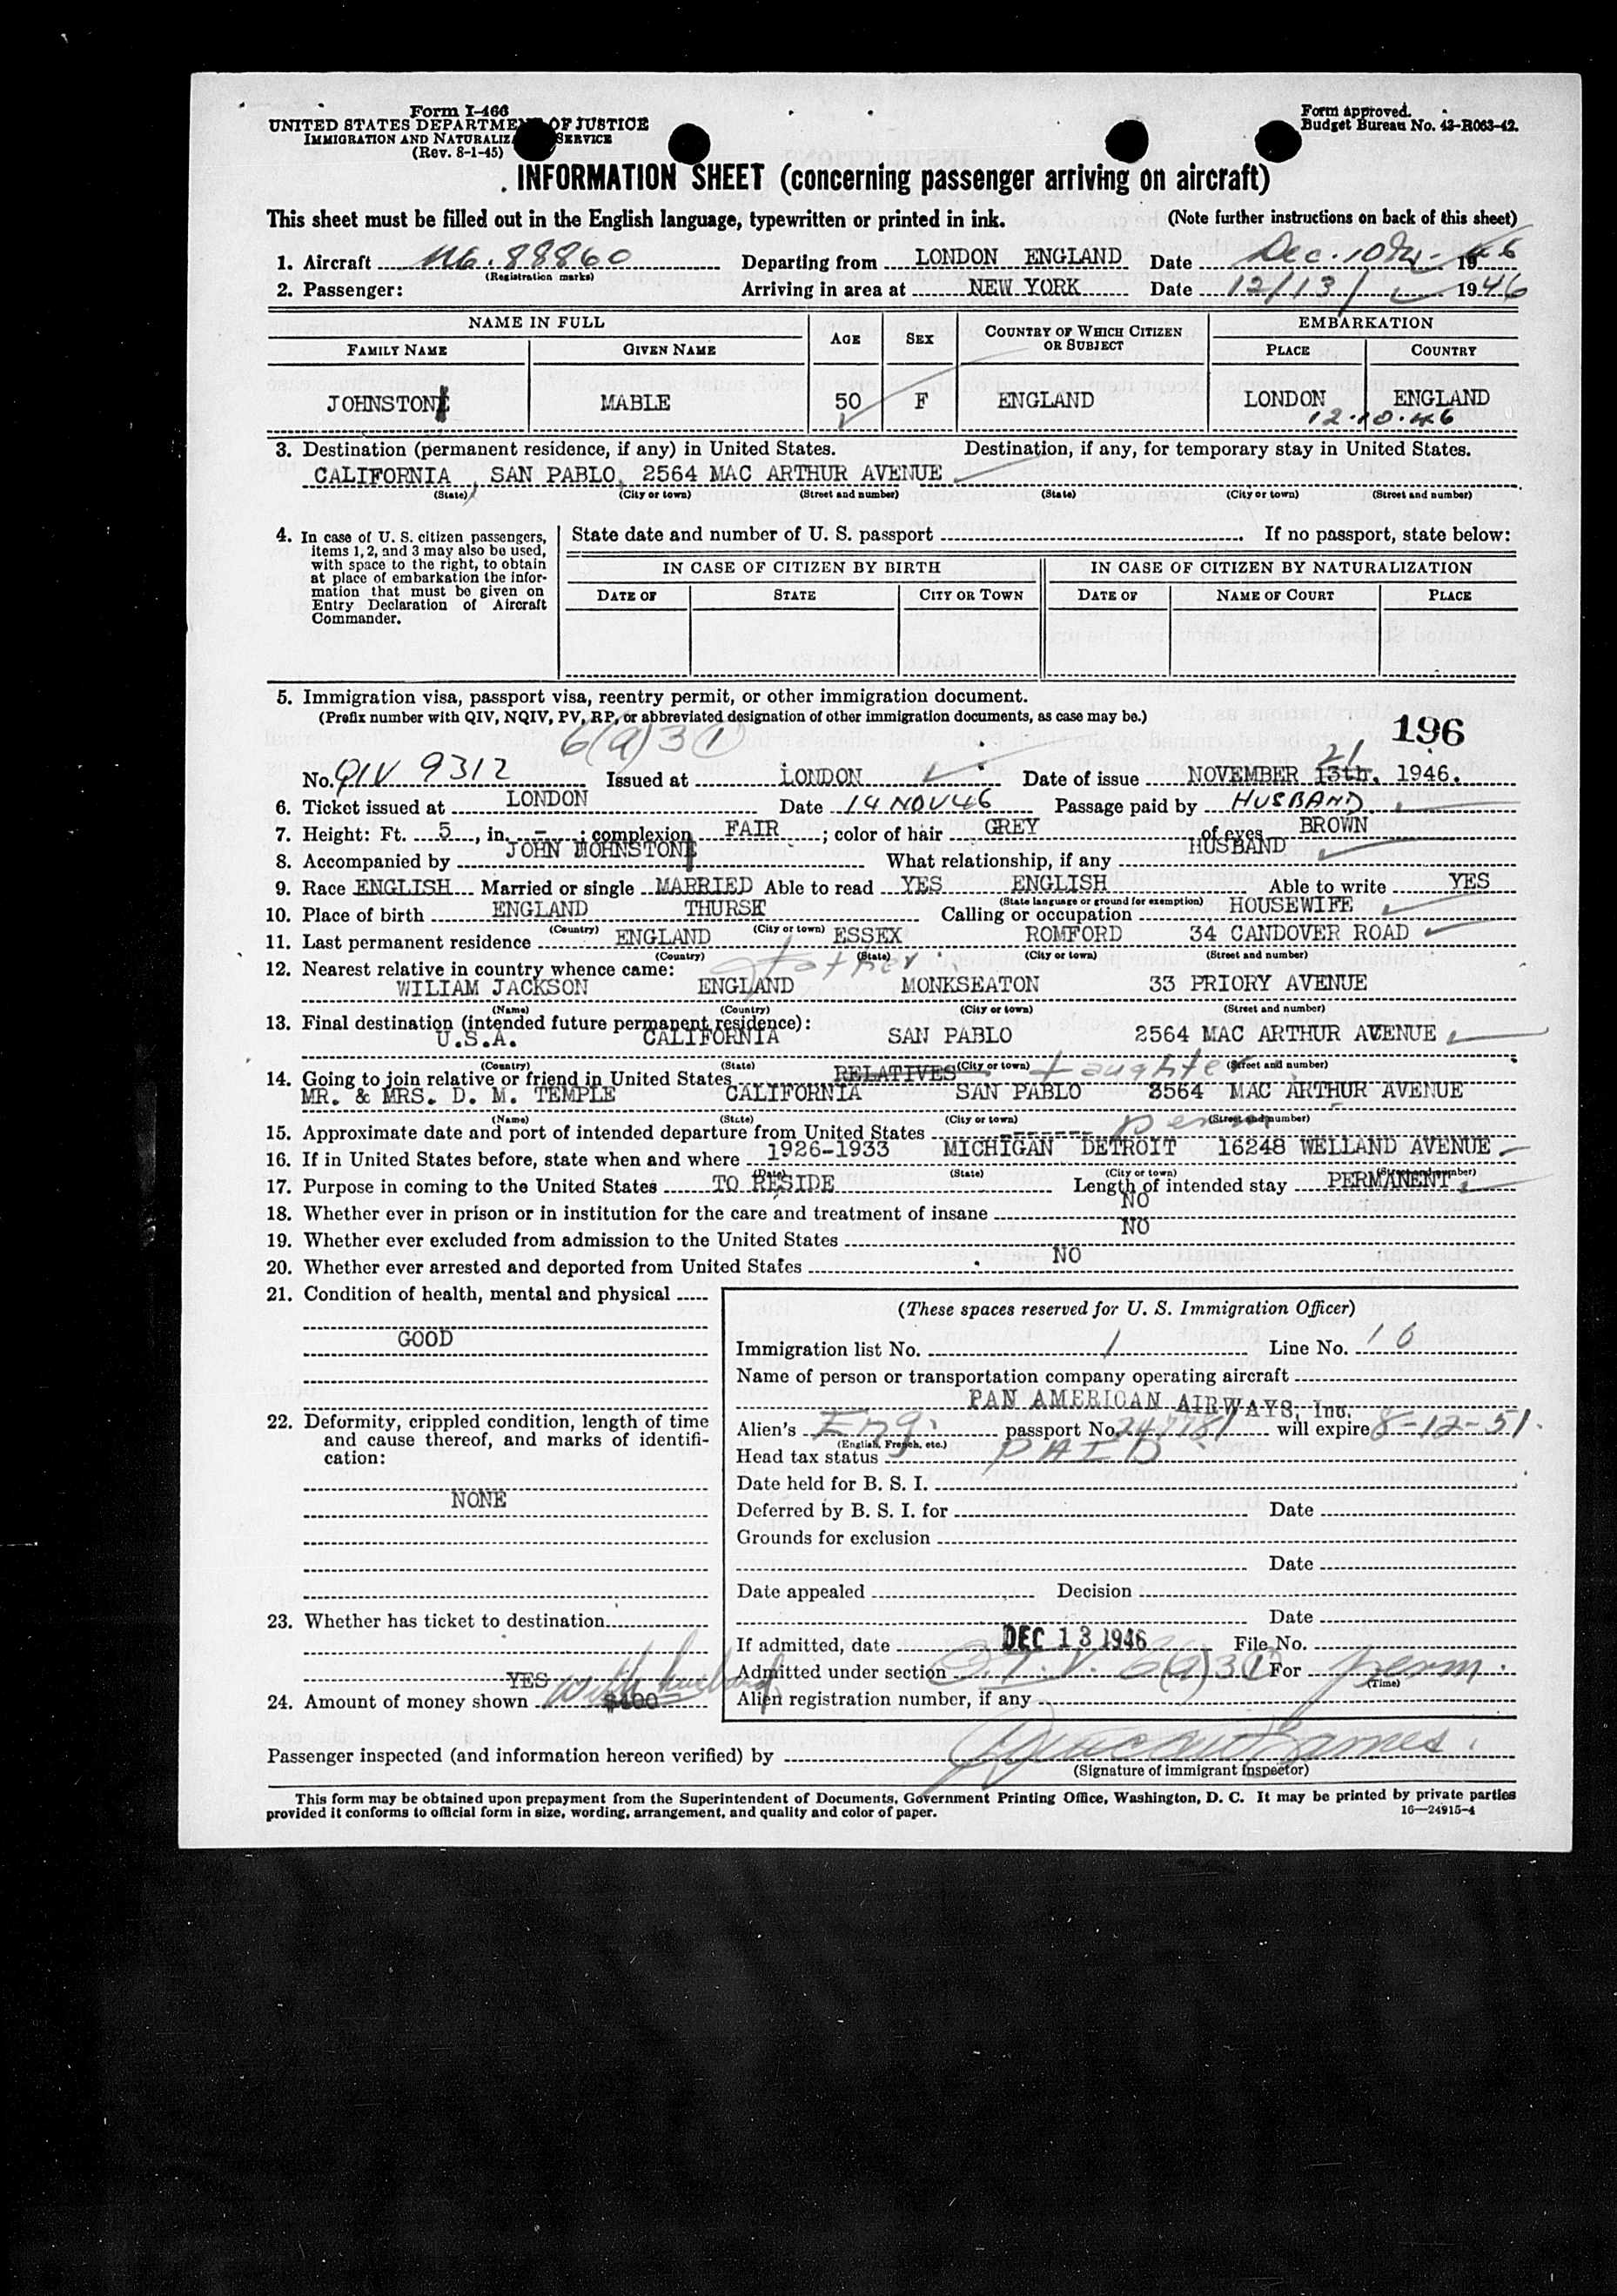 Form I-466
UNITED STATES DEPARTMENT OF JUSTICE
IMMIGRATION AND NATURALIZ SERVICE
(Rev. 8-1-45)
Form approved.
Budget Bureau No. 43-R063-42.
INFORMATION SHEET (concerning passenger arriving on aircraft)
This sheet must be filled out in the English language, typewritten or printed in ink. (Note further instructions on back of this sheet)
1. Aircraft 88860 Departing from LONDON ENGLAND Date Dec. 10th 1946
(Registration marks)
2. Passenger: Arriving in area at NEW YORK Date 12/13/ 1946
NAME IN FULL AGE SEX COUNTRY OF WHICH CITIZEN OR SUBJECT EMBARKATION
FAMILY NAME GIVEN NAME PLACE COUNTRY
JOHNSTON MABLE 50 F ENGLAND LONDON ENGLAND
12.10.46
3. Destination (permanent residence, if any) in United States. Destination, if any, for temporary stay in United States.
CALIFORNIA, SAN PABLO, 2564 MAC ARTHUR AVENUE
(State) (City or town) (Street and number) (State) (City or town) (Street and number)
4. In case of U. S. citizen passengers, items 1, 2, and 3 may also be used, with space to the right, to obtain at place of embarkation the information that must be given on Entry Declaration of Aircraft Commander.
State date and number of U. S. passport If no passport, state below:
IN CASE OF CITIZEN BY BIRTH IN CASE OF CITIZEN BY NATURALIZATION
DATE OF STATE CITY OR TOWN DATE OF NAME OF COURT PLACE
5. Immigration visa, passport visa, reentry permit, or other immigration document.
(Prefix number with QIV, NQIV, PV, RP, or abbreviated designation of other immigration documents, as case may be.)
6(a)3(1) 196
21
No. QIV 9312 Issued at LONDON Date of issue NOVEMBER 13th. 1946.
6. Ticket issued at LONDON Date 14 NOV 46 Passage paid by HUSBAND
7. Height: Ft. 5, in. -; complexion FAIR; color of hair GREY of eyes BROWN
8. Accompanied by JOHN JOHNSTON What relationship, if any HUSBAND
9. Race ENGLISH Married or single MARRIED Able to read YES ENGLISH Able to write YES
(State language or ground for exemption)
10. Place of birth ENGLAND THURSK Calling or occupation HOUSEWIFE
(Country) (City or town)
11. Last permanent residence ENGLAND ESSEX ROMFORD 34 CANDOVER ROAD
(Country) (State) (City or town) (Street and number)
12. Nearest relative in country whence came: father
WILIAM JACKSON ENGLAND MONKSEATON 33 PRIORY AVENUE
(Name) (Country) (City or town) (Street and number)
13. Final destination (intended future permanent residence):
U.S.A. CALIFORNIA SAN PABLO 2564 MAC ARTHUR AVENUE
(Country) (State) (City or town) (Street and number)
14. Going to join relative or friend in United States RELATIVES daughter
MR. & MRS. D. M. TEMPLE CALIFORNIA SAN PABLO 2564 MAC ARTHUR AVENUE
(Name) (State) (City or town) (Street and number)
15. Approximate date and port of intended departure from United States -------- perm
16. If in United States before, state when and where 1926-1933 MICHIGAN DETROIT 16248 WELLAND AVENUE
(Date) (State) (City or town) (Street and number)
17. Purpose in coming to the United States TO RESIDE Length of intended stay PERMANENT
18. Whether ever in prison or in institution for the care and treatment of insane NO
19. Whether ever excluded from admission to the United States NO
20. Whether ever arrested and deported from United States NO
21. Condition of health, mental and physical
GOOD
22. Deformity, crippled condition, length of time and cause thereof, and marks of identification:
NONE
23. Whether has ticket to destination
YES
24. Amount of money shown $400 With husband
(These spaces reserved for U. S. Immigration Officer)
Immigration list No. 1 Line No. 10
Name of person or transportation company operating aircraft
PAN AMERICAN AIRWAYS, Inc.
Alien's Eng. passport No. 247781 will expire 8-12-51.
(English, French, etc.)
Head tax status PAID
Date held for B. S. I.
Deferred by B. S. I. for Date
Grounds for exclusion
Date
Date appealed Decision
Date
If admitted, date DEC 13 1946 File No.
Admitted under section Q.I.V. 6(a)3(1) For perm.
(Time)
Alien registration number, if any
Passenger inspected (and information hereon verified) by
(Signature of immigrant inspector)
This form may be obtained upon prepayment from the Superintendent of Documents, Government Printing Office, Washington, D. C. It may be printed by private parties
provided it conforms to official form in size, wording, arrangement, and quality and color of paper. 16—24915-4